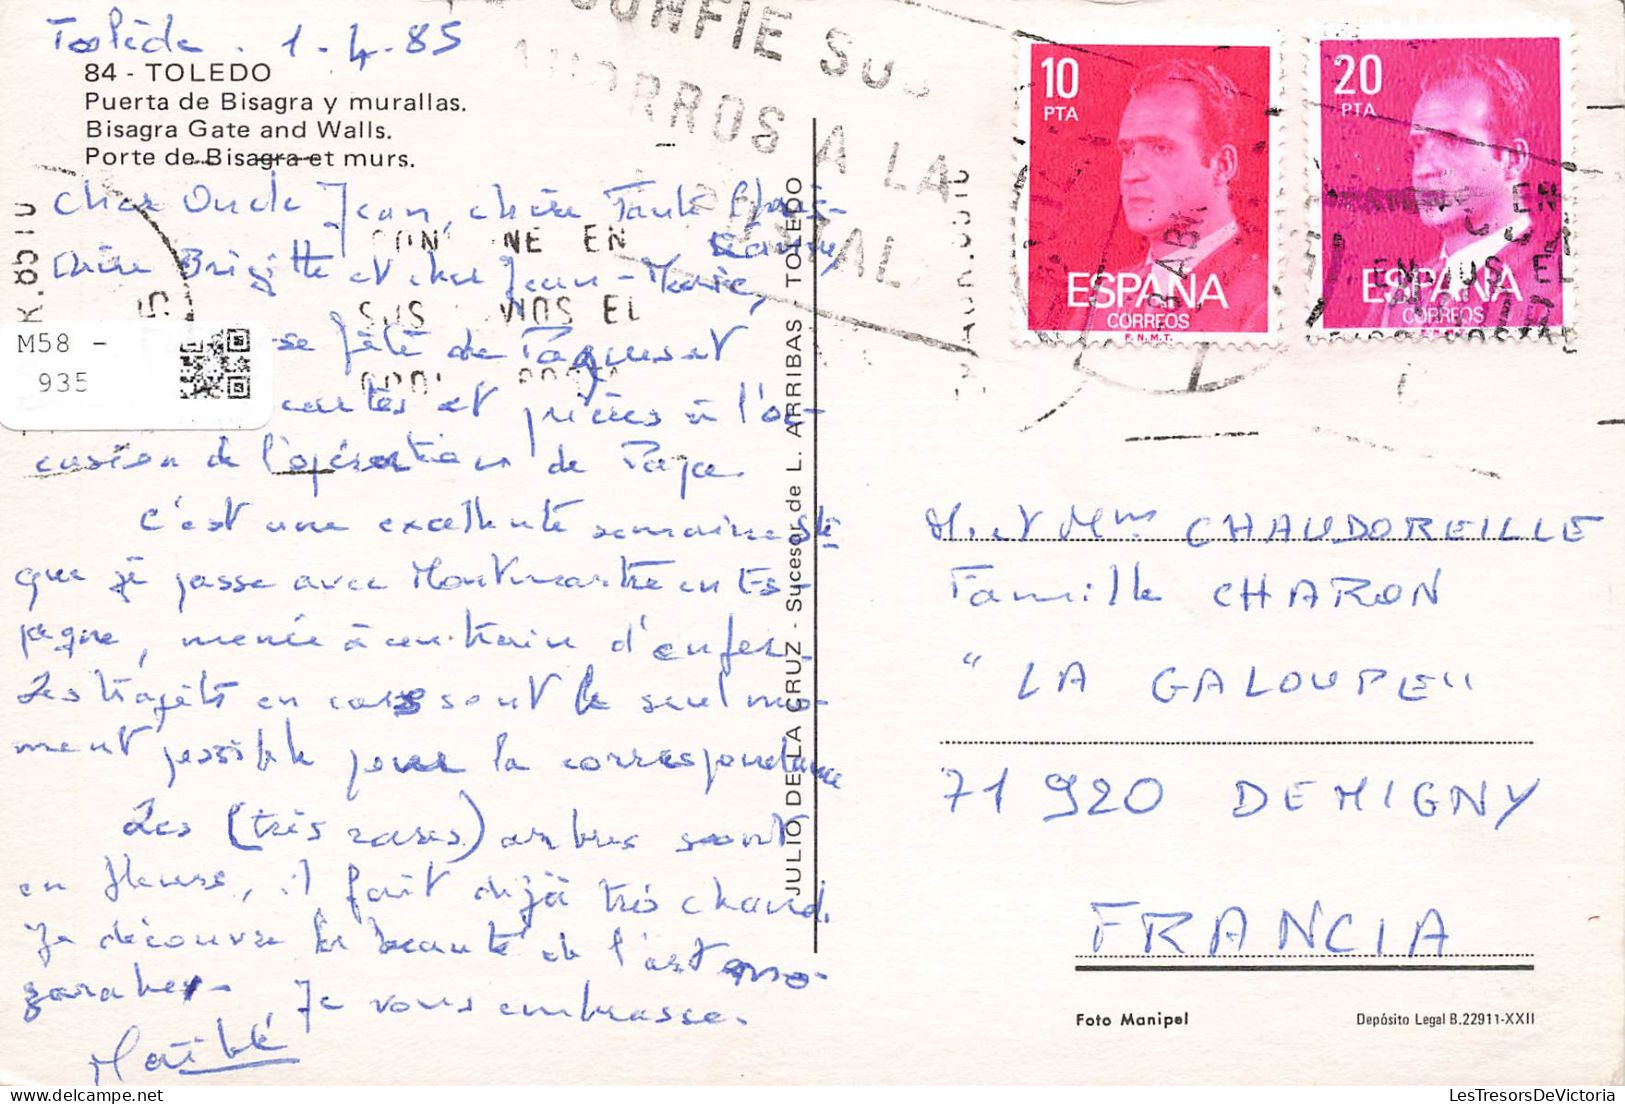 Tolède . 1-4.85
84 - TOLEDO
Puerta de Bisagra y murallas.
Bisagra Gate and Walls.
Porte de Bisagra et murs.
Cher Oncle Jean, chère Tante
chère Brigitte et cher Jean-Marie,
fête de Pâques et
et prières à l'oc-
casion de l'opération de Papa.
C'est une excellente semaine Ste
que je passe avec Montmartre en Es-
pagne, menée à un train d'enfer.
Les trajets en cars sont le seul mo-
ment possible pour la correspondance
Les (très rares) arbres sont
en fleurs, il fait déjà très chaud.
Je découvre la beauté de l'art mo-
zarabe. Je vous embrasse.
M58 -
935
CONFIE SUS
AHORROS A LA
POSTAL
JULIO DE LA CRUZ - Sucesor de L. ARRIBAS - TOLEDO
10
PTA
ESPAÑA
CORREOS
F.N.M.T.
20
PTA
ESPAÑA
CORREOS
M. et Mme CHAUDOREILLE
Famille CHARON
"LA GALOUPE"
71 920 DEMIGNY
FRANCIA
Foto Manipel
Depósito Legal B.22911-XXII
LesTresorsDeVictoria.com